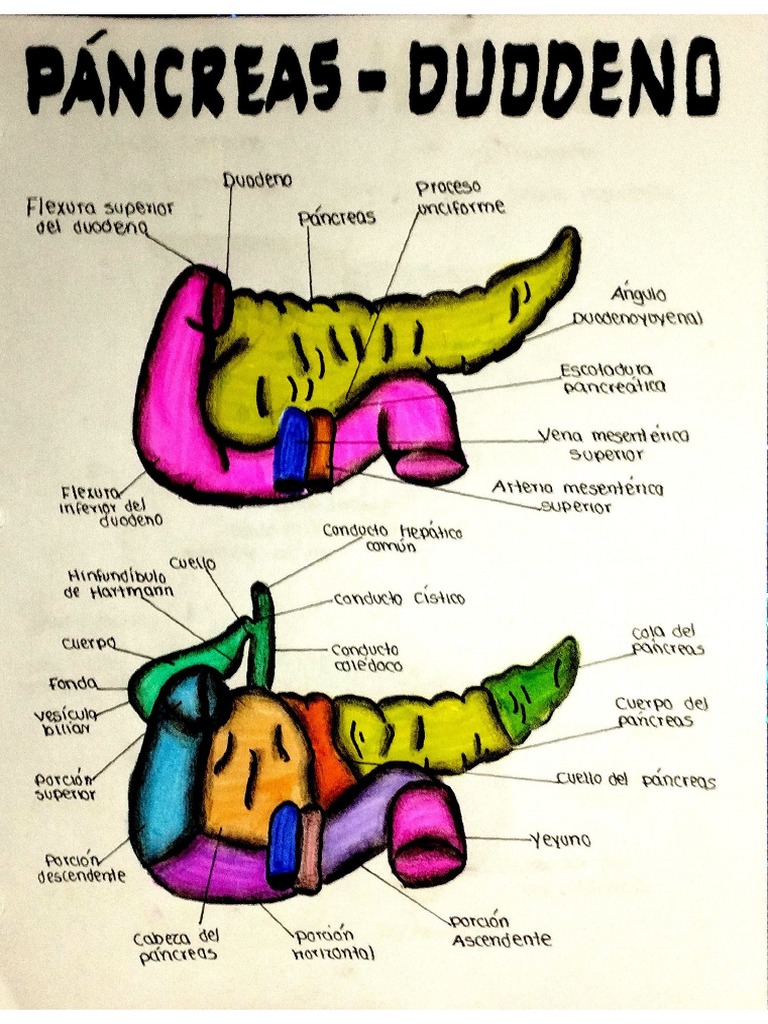 PÁNCREAS - DUODENO
Duodeno
Flexura superior
del duodeno
Páncreas
Proceso
unciforme
Ángulo
Duodenoyoyenal
Escoladura
pancreática
Vena mesentérica
superior
Arteria mesentérica
superior
Flexura
inferior del
duodeno
Conducto Hepático
común
Cuello
Hinfundíbulo
de Hartmann
Conducto Cístico
Cuerpo
Conducto
colédoco
Cola del
páncreas
Fonda
Vesícula
biliar
Cuerpo del
páncreas
Porción
superior
Cuello del páncreas
Yeyuno
Porción
descendente
Cabeza del
páncreas
porción
horizontal
porción
Ascendente